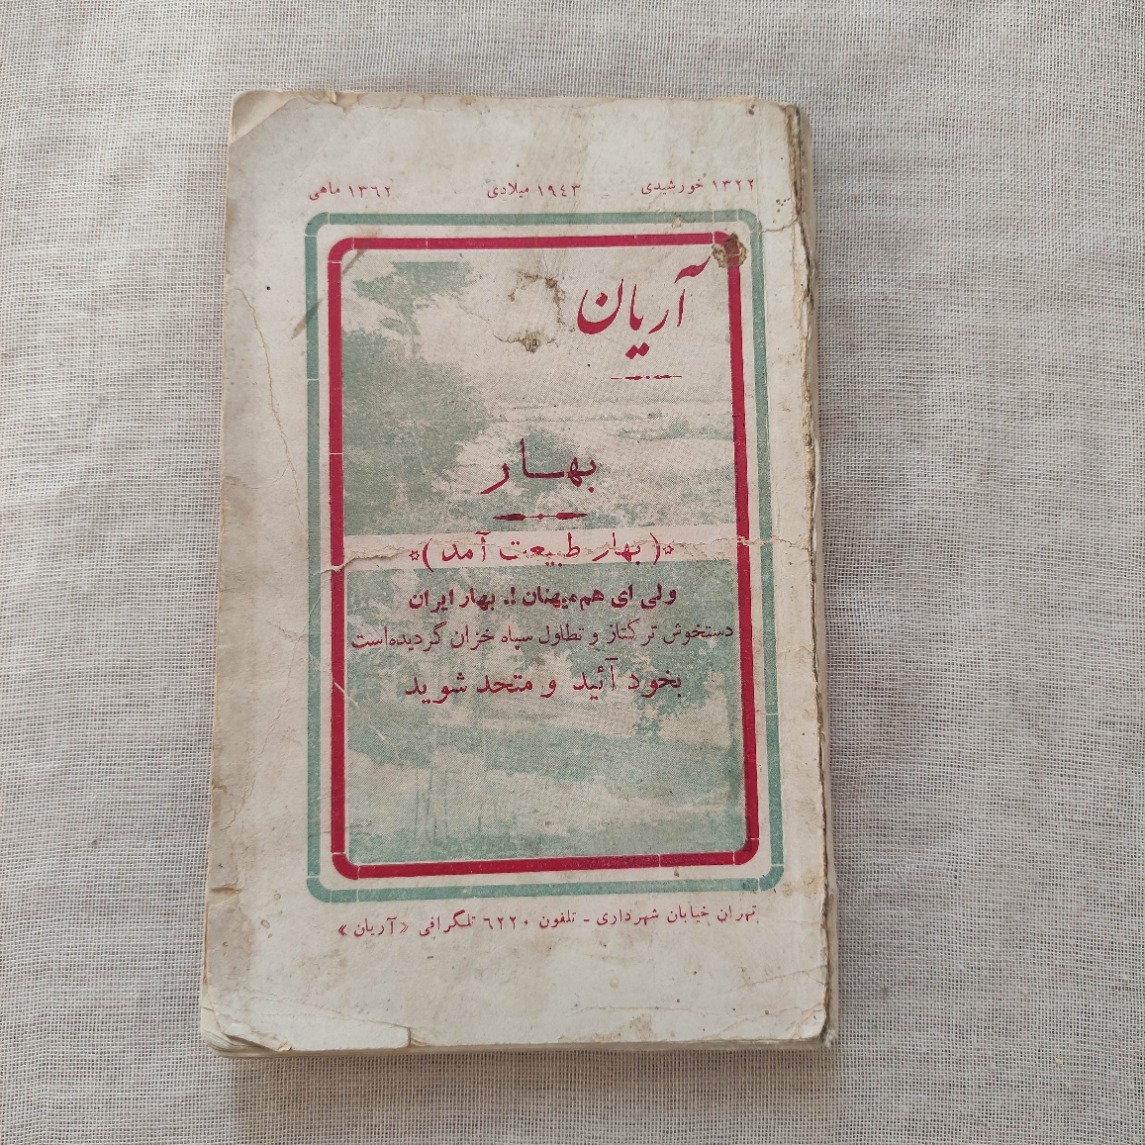 ۱۳۲۲ خورشیدی ۱۹٤۳ میلادی ۱۳٦۲ ماهی
آریان
بهار
(بهار طبیعت آمد)
ولی ای هم‌میهنان !. بهار ایران
دستخوش ترکتاز و تطاول سپاه خزان گردیده‌است
بخود آئید و متحد شوید
تهران خیابان شهرداری - تلفون ٦۲۲۰ تلگرافی «آریان»